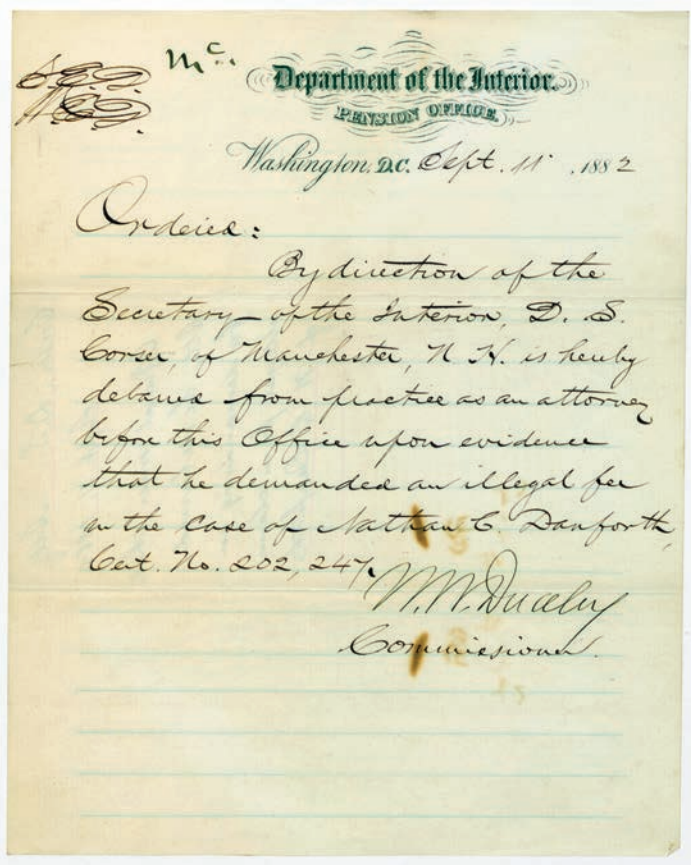 Mc.
Department of the Interior.
PENSION OFFICE.
Washington, D.C. Sept. 11, 1882
Ordered:
By direction of the
Secretary of the Interior, D. S.
Corser, of Manchester, N. H. is hereby
debarred from practice as an attorney
before this Office upon evidence
that he demanded an illegal fee
in the case of Nathan C. Danforth,
Cert. No. 202,247.
W. W. Dudley
Commissioner.